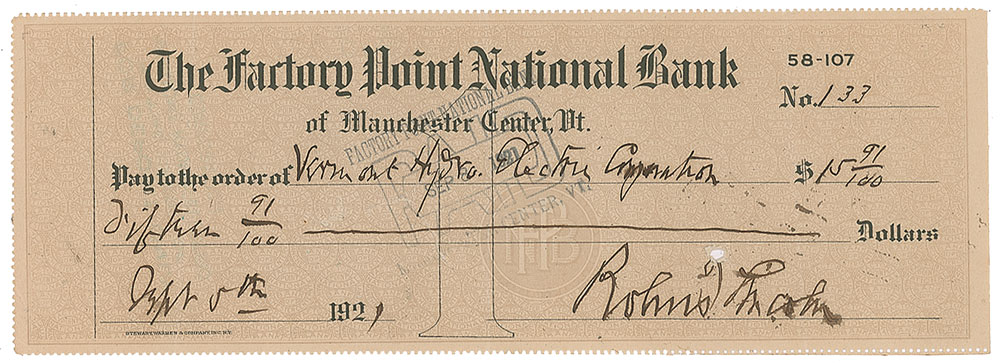 The Factory Point National Bank
58-107
No. 133
of Manchester Center, Vt.
FACTORY POINT NATIONAL BANK
SEP 1921
CENTER, VT.
Pay to the order of Vermont Hydro. Electric Corporation $ 15 91/100
Fifteen 91/100 Dollars
Sept 5th 1921
Robert Lincoln
STEWART WARREN & COMPANY INC. N.Y.